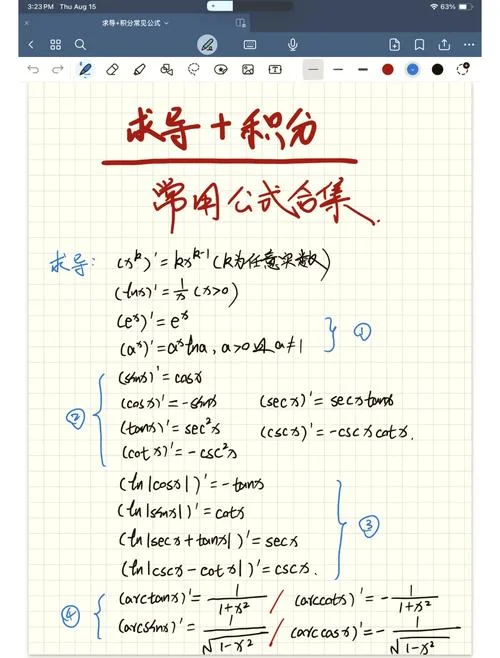 3:23 PM Thu Aug 15 63%
求导+积分常见公式
求导+积分
常用公式合集.
求导: (x^k)'=kx^{k-1} (k为任意实数)
(lnx)'=1/x (x>0)
(e^x)'=e^x
(a^x)'=a^x lna, a>0且a≠1 ①
(sinx)'=cosx
② (cosx)'=-sinx (secx)'=secxtanx
(tanx)'=sec²x (cscx)'=-cscxcotx.
(cotx)'=-csc²x
(ln|cosx|)'=-tanx
(ln|sinx|)'=cotx
(ln|secx+tanx|)'=secx ③
(ln|cscx-cotx|)'=cscx.
④ (arctanx)'=1/(1+x²) / (arccotx)'=-1/(1+x²)
(arcsinx)'=1/√(1-x²) / (arccosx)'=-1/√(1-x²)